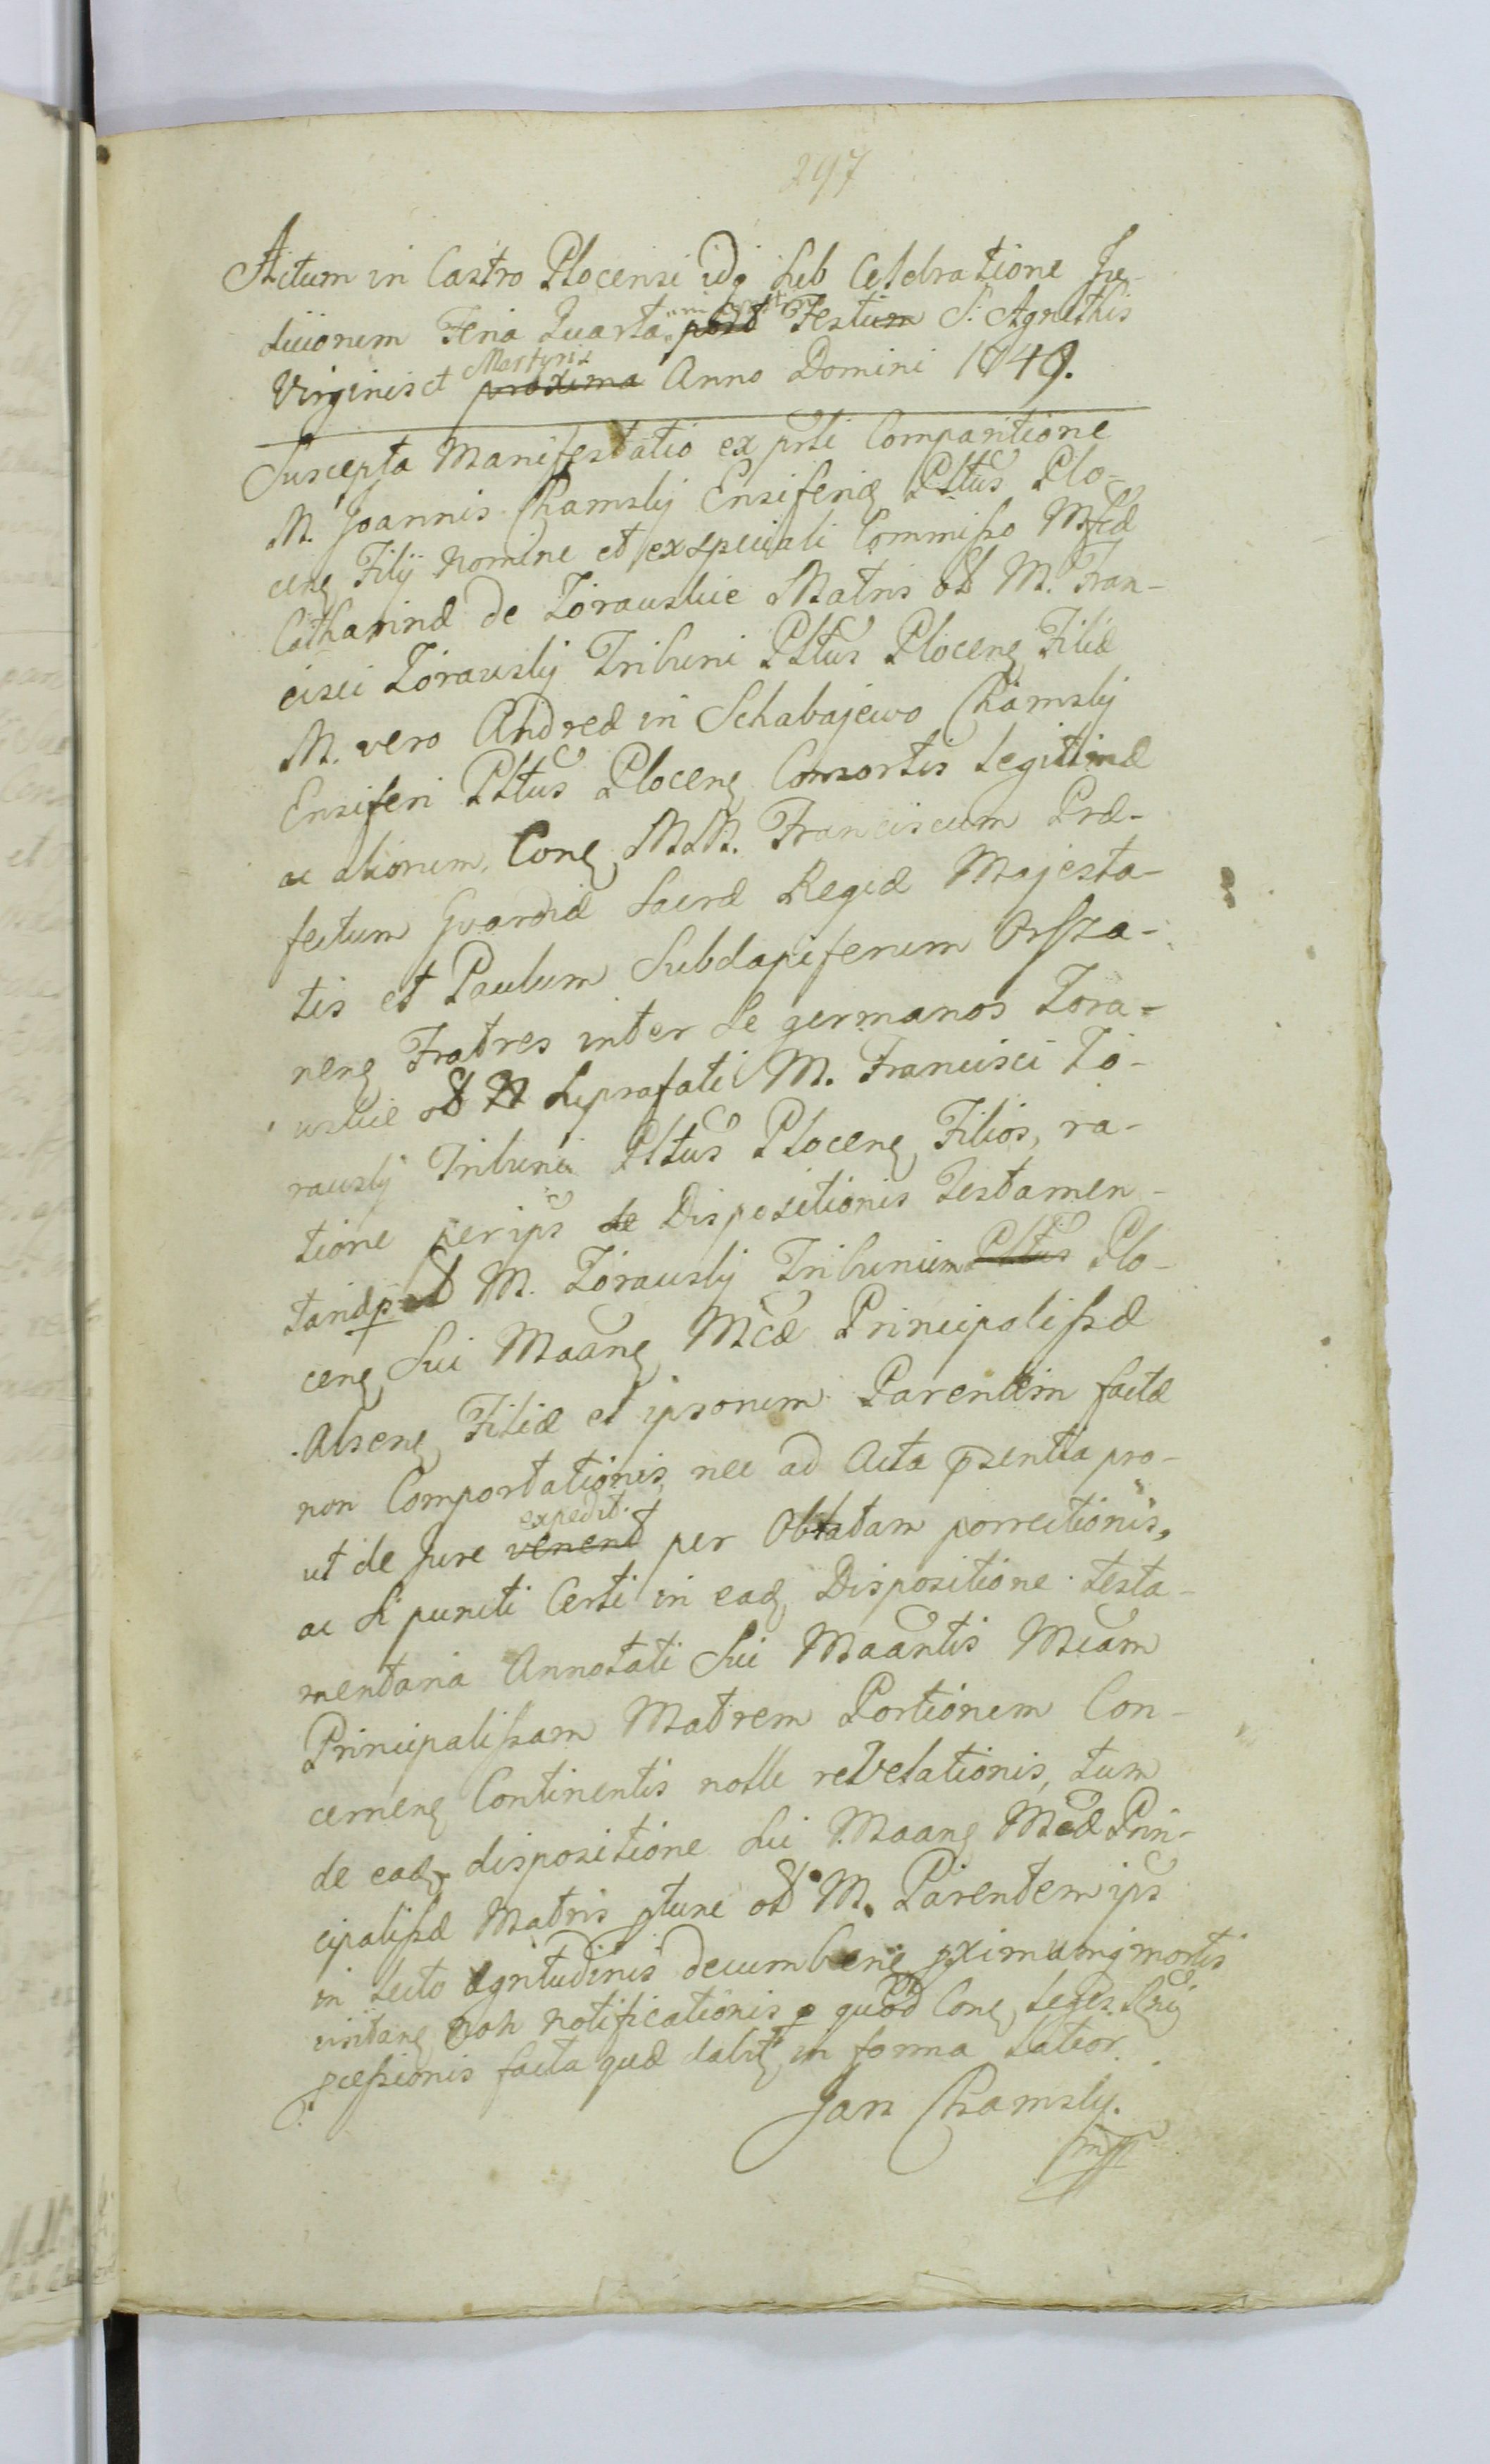 297
Actum in Castro Plocensi idq sub Celebratione Ju-
diciorum Feria Quarta post Festum S. Agnethis
Virginis et Martyris proxima Anno Domini 1749.
Suscepta Manifestatio ex prsti Comparitione
M. Joannis Chamsky Ensiferidę Plttus Plo-
ceng Filij nomine et ex speciali Commisso Mfcæ
Catharinæ de Zorawskie Matris olt M. Fran-
cisci Zorawsky Tribuni Plttus Ploceng Filiæ
M. vero Andreæ in Schabajewo Chamsky
Ensiferi Plttus Ploceng Consortis legitimæ
ac aliorum. Cong MM. Franciscum Præ-
fectum Gvardiæ Sacræ Regiæ Majesta-
tis et Paulum Subdapiferum Orsza-
neng Fratres inter se germanos Zora-
wskie olt suprafati M. Francisci Zo-
rawsky Tribuni Plttus Ploceng Filios, ra-
tione per ips de Dispositionis Testamen-
tariæ p olt M. Zorawsky Tribunum Plttus Plo-
ceng sui Maang Mcæ Principalissæ
Abseng Filiæ et ipsorum Parentem factæ
non Comportationis, nec ad Acta psentia pro-
expedit.
ut de Jure venent per Oblatam porrectionis,
ac si puncti Certi in eadg Dispositione testa-
mentaria Annotati sui Maantis Mcam
Principalissam Matrem Portionem Con-
cerneng Continentis nolle revelationis, tum
de eadg dispositione sui Maang Mcæ Prin-
cipalissæ Matris ptunc olt M. Parentem ips
in lecto ægritudinis decumbeng pximamq mortis
non notificationis p quod Cong leges
pcessionis facta quæ dabitg in forma latior.
Jan Chamsky.
mp